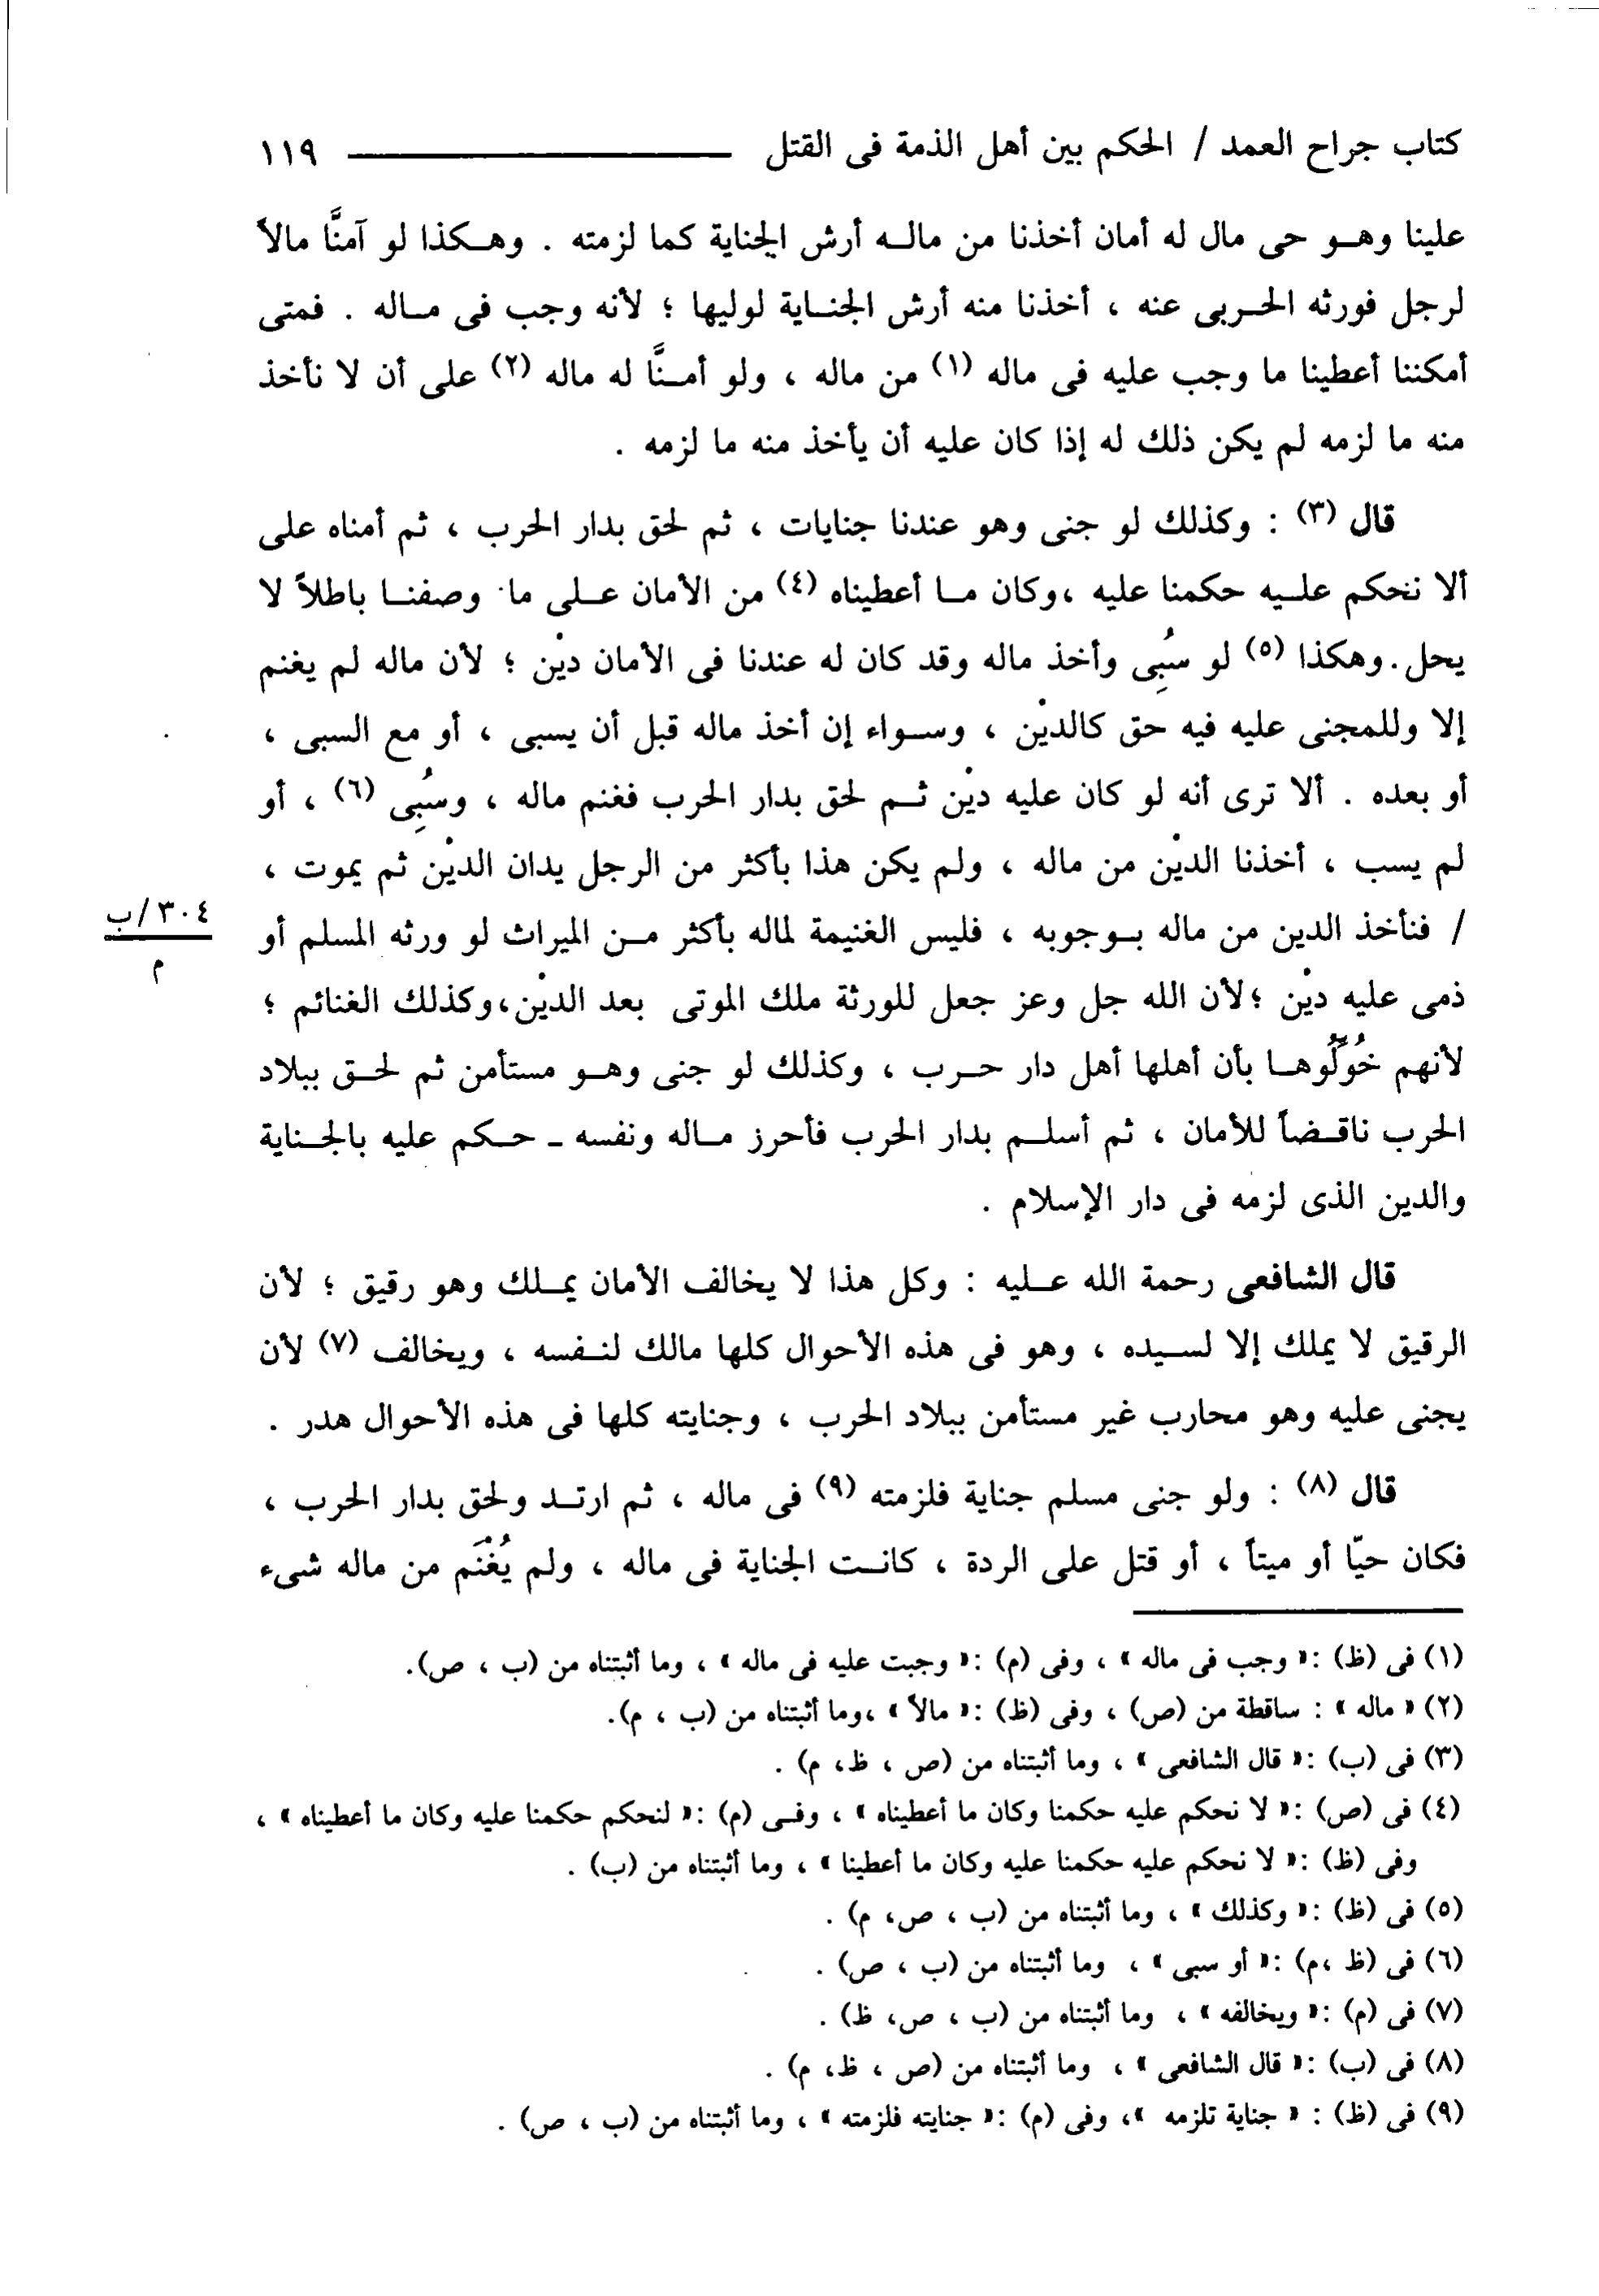 كتاب جراح العمد / الحكم بين أهل الذمة فى القتل ــــــــــــ ١١٩
علينا وهـو حى مال له أمان أخذنا من مالـه أرش الجناية كما لزمته . وهـكذا لو آمنَّا مالاً
لرجل فورثه الحربى عنه ، أخذنا منه أرش الجناية لوليها ؛ لأنه وجب فى ماله . فمتى
أمكننا أعطينا ما وجب عليه فى ماله (١) من ماله ، ولو أمنَّا له ماله (٢) على أن لا نأخذ
منه ما لزمه لم يكن ذلك له إذا كان عليه أن يأخذ منه ما لزمه .
قال (٣) : وكذلك لو جنى وهو عندنا جنايات ، ثم لحق بدار الحرب ، ثم أمناه على
ألا نحكم عليه حكمنا عليه ،وكان ما أعطيناه (٤) من الأمان على ما وصفنا باطلاً لا
يحل.وهكذا (٥) لو سُبِى وأخذ ماله وقد كان له عندنا فى الأمان ديْن ؛ لأن ماله لم يغنم
إلا وللمجنى عليه فيه حق كالديْن ، وسواء إن أخذ ماله قبل أن يسبى ، أو مع السبى ،
أو بعده . ألا ترى أنه لو كان عليه ديْن ثم لحق بدار الحرب فغنم ماله ، وسُبِى (٦) ، أو
لم يسب ، أخذنا الديْن من ماله ، ولم يكن هذا بأكثر من الرجل يدان الديْن ثم يموت ،
/ فنأخذ الدين من ماله بوجوبه ، فليس الغنيمة لماله بأكثر من الميراث لو ورثه المسلم أو
٣٠٤/ب
م
ذمى عليه ديْن ؛لأن الله جل وعز جعل للورثة ملك الموتى بعد الديْن،وكذلك الغنائم ؛
لأنهم خُوِّلُوها بأن أهلها أهل دار حرب ، وكذلك لو جنى وهو مستأمن ثم لحق ببلاد
الحرب ناقضاً للأمان ، ثم أسلم بدار الحرب فأحرز ماله ونفسه ـ حكم عليه بالجناية
والدين الذى لزمه فى دار الإسلام .
قال الشافعى رحمة الله عليه : وكل هذا لا يخالف الأمان يملك وهو رقيق ؛ لأن
الرقيق لا يملك إلا لسيده ، وهو فى هذه الأحوال كلها مالك لنفسه ، ويخالف (٧) لأن
يجنى عليه وهو محارب غير مستأمن ببلاد الحرب ، وجنايته كلها فى هذه الأحوال هدر .
قال (٨) : ولو جنى مسلم جناية فلزمته (٩) فى ماله ، ثم ارتد ولحق بدار الحرب ،
فكان حيّا أو ميتاً ، أو قتل على الردة ، كانت الجناية فى ماله ، ولم يُغْنَم من ماله شىء
(١) فى (ظ) :« وجب فى ماله » ، وفى (م) :« وجبت عليه فى ماله » ، وما أثبتناه من (ب ، ص).
(٢) « ماله » : ساقطة من (ص) ، وفى (ظ) :« مالاً » ،وما أثبتناه من (ب ، م).
(٣) فى (ب) :« قال الشافعى » ، وما أثبتناه من (ص ، ظ، م) .
(٤) فى (ص) :« لا نحكم عليه حكمنا وكان ما أعطيناه » ، وفى (م) :« لنحكم حكمنا عليه وكان ما أعطيناه » ،
وفى (ظ) :« لا نحكم عليه حكمنا عليه وكان ما أعطينا » ، وما أثبتناه من (ب) .
(٥) فى (ظ) :« وكذلك » ، وما أثبتناه من (ب ، ص، م) .
(٦) فى (ظ ،م) :« أو سبى » ، وما أثبتناه من (ب ، ص) .
(٧) فى (م) :« ويخالفه » ، وما أثبتناه من (ب ، ص، ظ) .
(٨) فى (ب) :« قال الشافعى » ، وما أثبتناه من (ص ، ظ، م) .
(٩) فى (ظ) : « جناية تلزمه »، وفى (م) :« جنايته فلزمته » ، وما أثبتناه من (ب ، ص) .